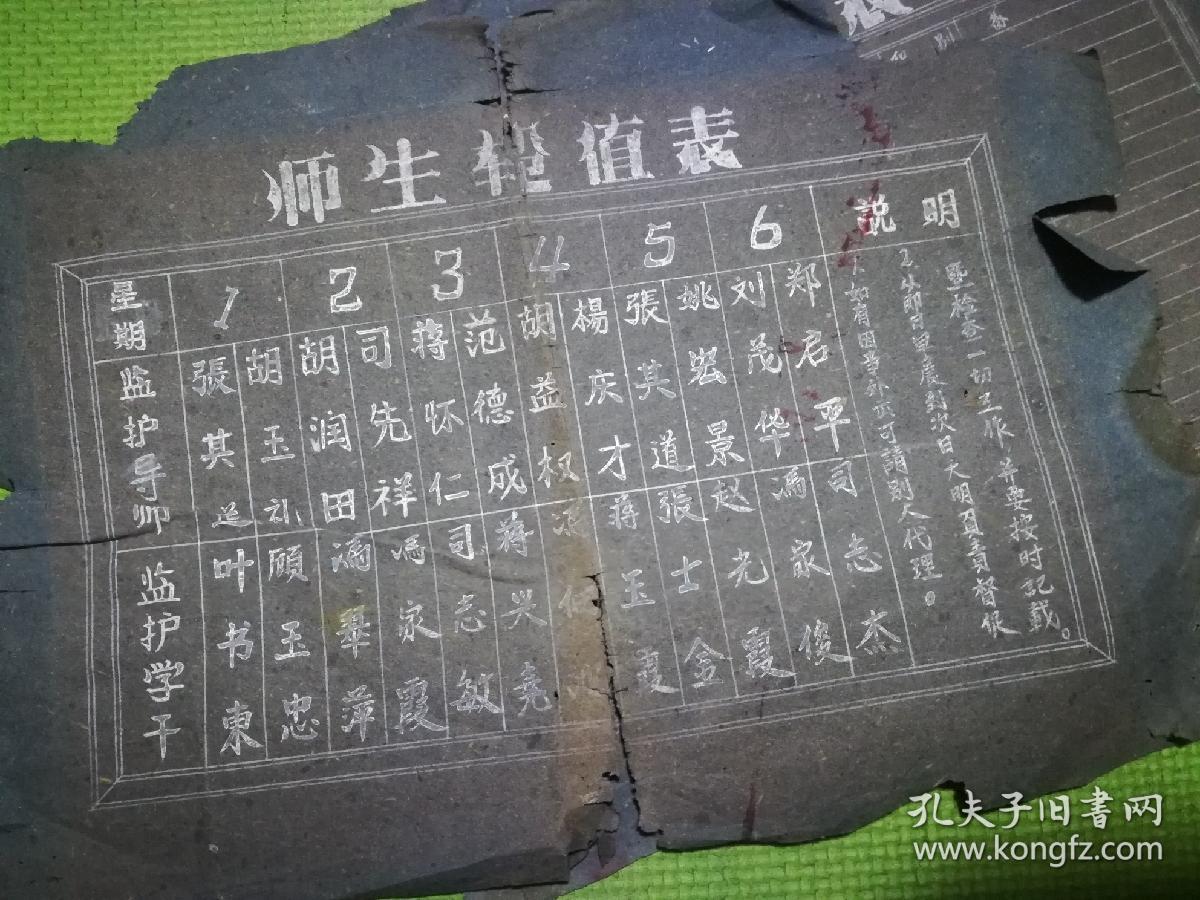 师生轮值表
星期 1 2 3 4 5 6 说明
监护导师 張其延 胡玉礼 胡润田 司先祥 蒋怀仁 范德成 胡益权 楊庆才 張其道 姚宏景 刘茂华 郑君平
监护学干 叶书東 顾玉忠 馮翠萍 馮家霞 司志敏 蒋兴堯 蒋玉霞 張士金 赵光霞 馮家俊 司志杰
1、如有因事外出可請别人代理。
2、
对次日
負責督促
暨检查一切工作，并要按时記载。
别
孔夫子旧書网
www.kongfz.com